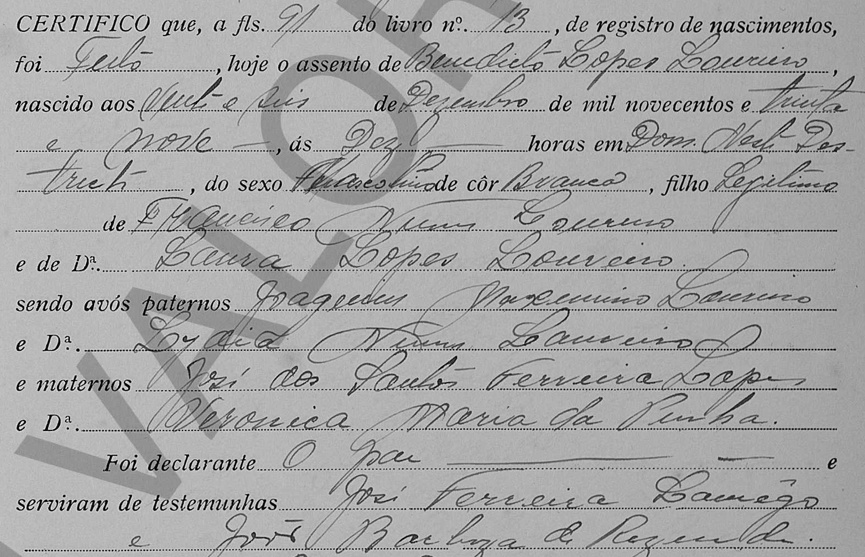 CERTIFICO que, a fls. 91 do livro nº. 13, de registro de nascimentos,
foi Feito, hoje o assento de Benedicto Lopes Loureiro,
nascido aos Vinte e seis de Dezembro de mil novecentos e trinta
e nove —, ás Dez — horas em Dom. Neste Des-
tricto, do sexo Masculino de côr Branca, filho Legitimo
de Francisco Nunes Loureiro
e de Dª. Laura Lopes Loureiro.
sendo avós paternos Maximino Loureiro
e Dª. Lydia Nunes Loureiro
e maternos José dos Santos Ferreira Lopes
e Dª. Veronica Maria da Penha.
Foi declarante O pai — — e
serviram de testemunhas José Ferreira Lamêgo
e João Barboza de Rezende.
VALOR